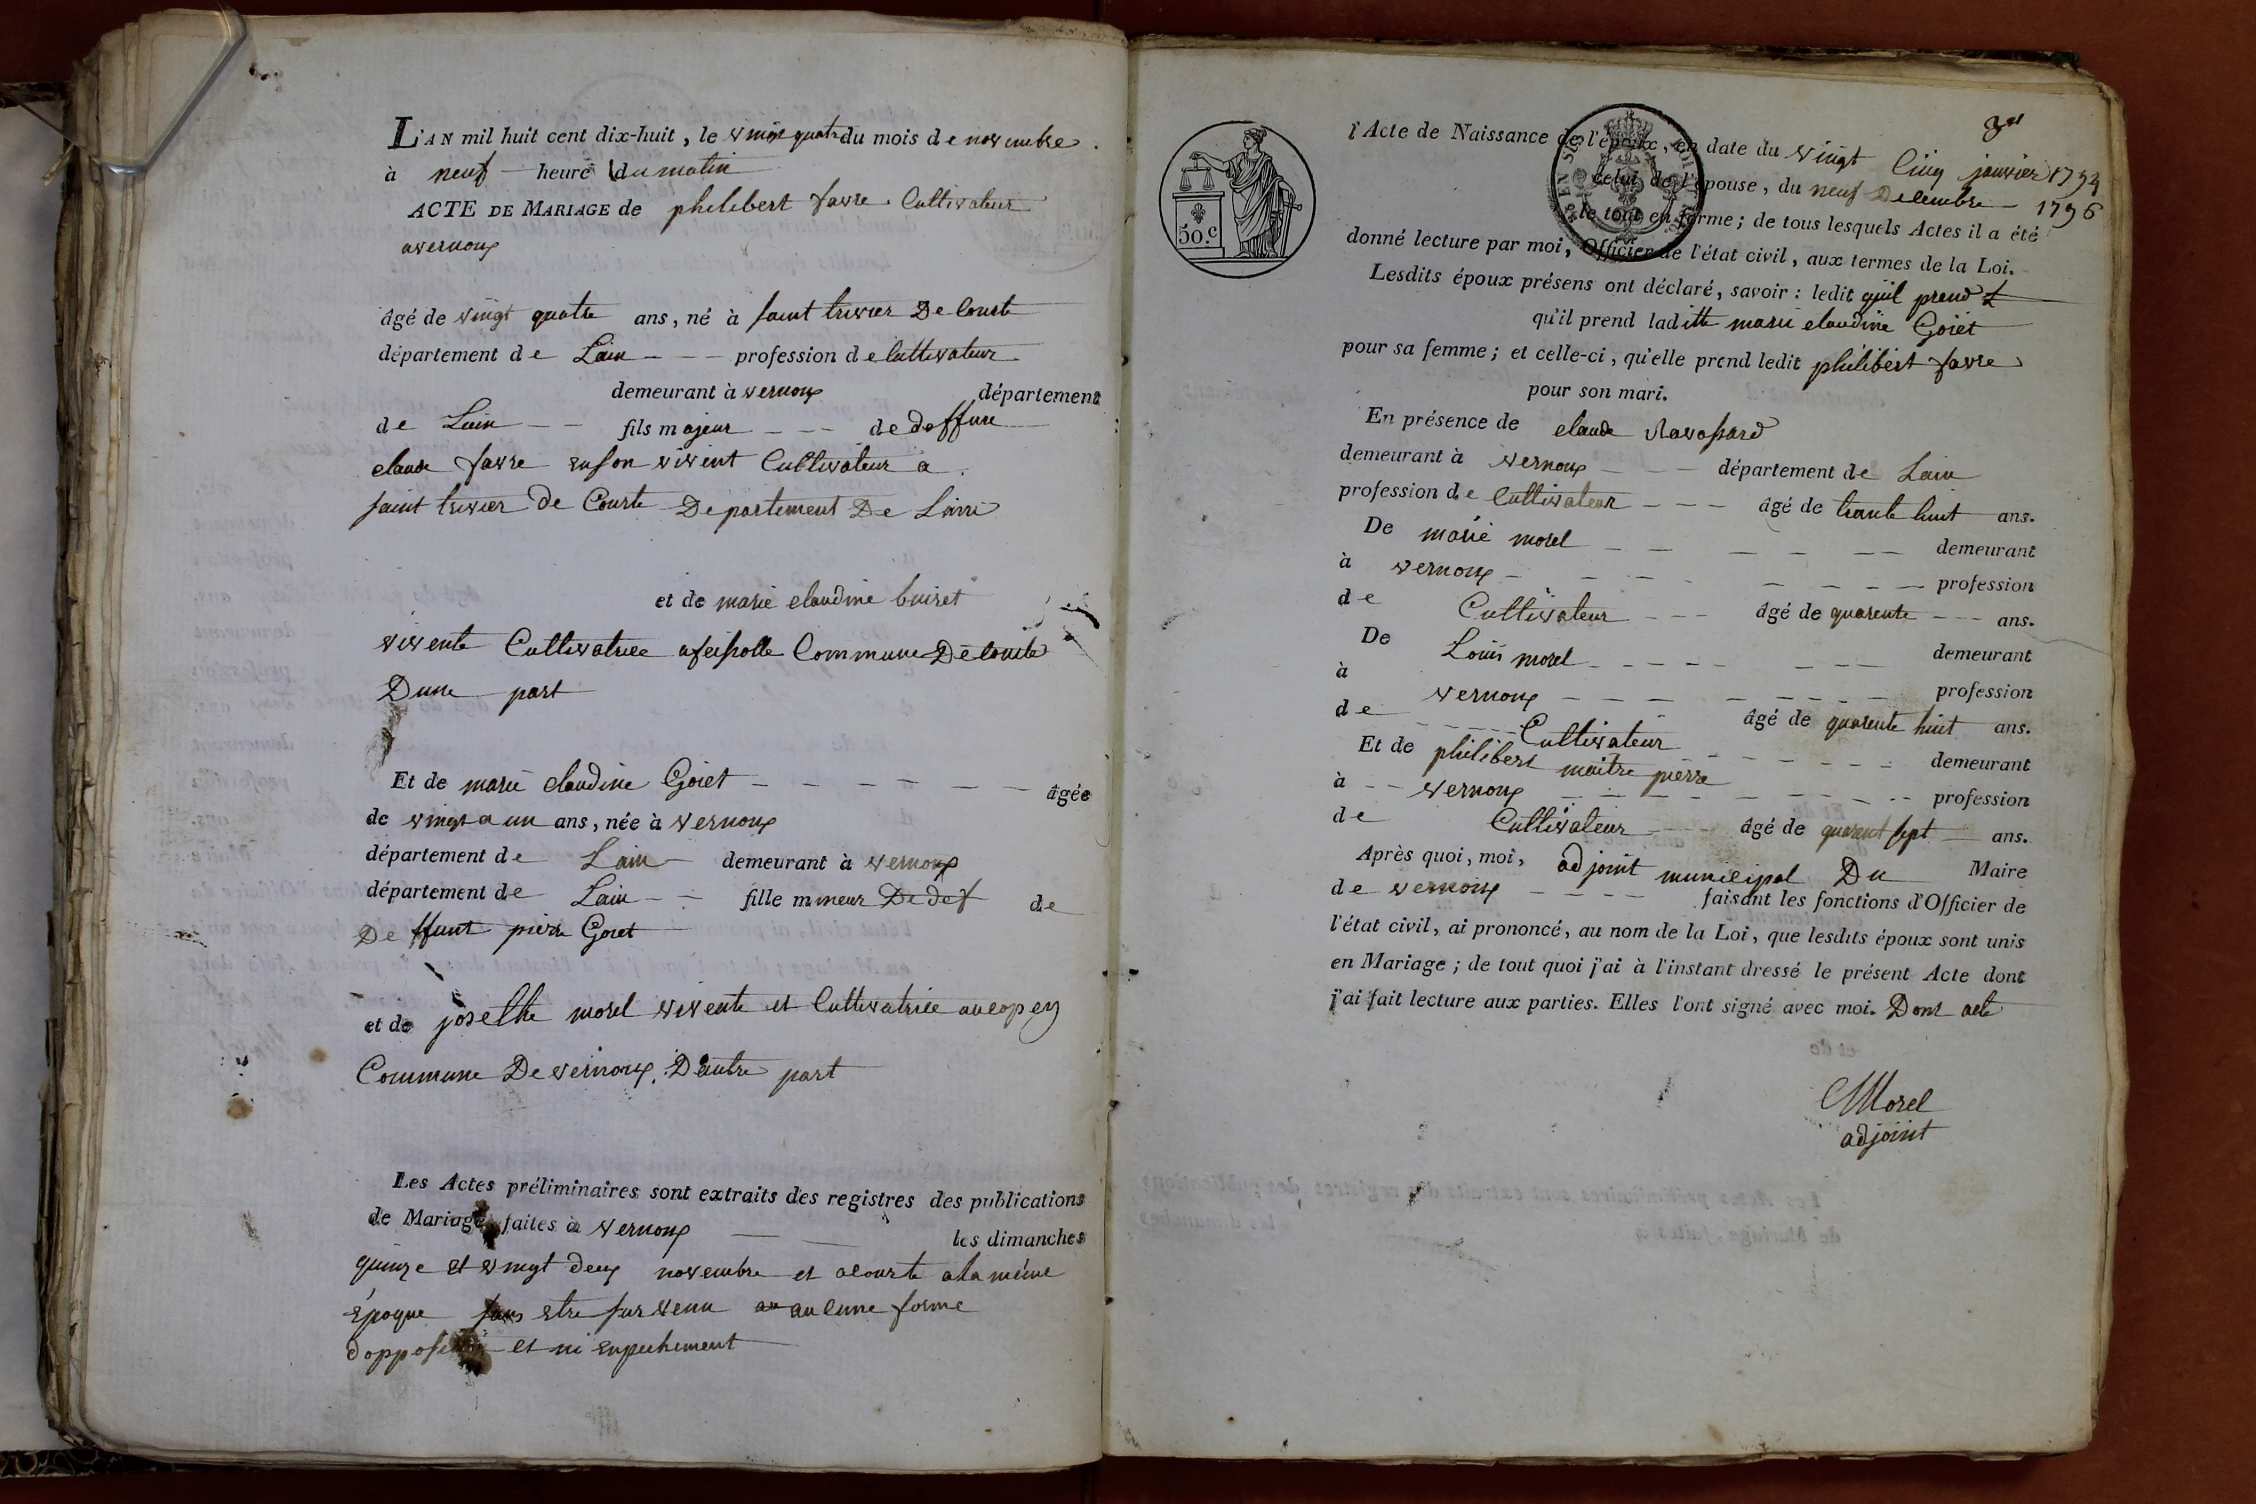 L'AN mil huit cent dix-huit, le vingt quatr du mois de novembre
à neuf heure du matin
ACTE DE MARIAGE de philibert favre Cultivateur
avernoux
âgé de vingt quatre ans, né à saint trivier De Courte
département de Lain - - - profession de Cultivateur
demeurant à vernoux département
de Lain - - fils majeur - - - de deffunt
claude favre en son vivent Cultivateur a
saint trivier de Courte Departement De Lain
et de marie claudine buiret
vivente Cultivatrice a Commune De Courte
Dune part
Et de marie claudine Goiet - - - - - - âgée
de vingt a un ans, née à vernoux
département de Lain - demeurant à vernoux
département de Lain - - fille mineur De def de
Deffunt pierre Goiet
et de josethe morel vivente et Cultivatrice au
Commune De vernoux. Dautre part
Les Actes préliminaires sont extraits des registres des publications
de Mariage faites à vernoux - - les dimanches
quinze et vingt deux novembre et a Courte a la même
époque sans etre survenu au aucune forme
dopposition et ni enpechement
50.c
3
l'Acte de Naissance de l'époux, en date du vingt Cinq janvier 1794
celui de l'épouse, du neuf Decembre - 1796
le tout en forme; de tous lesquels Actes il a été
donné lecture par moi, Officier de l'état civil, aux termes de la Loi.
Lesdits époux présens ont déclaré, savoir : ledit quil prend
qu'il prend laditte marie claudine Goiet
pour sa femme; et celle-ci, qu'elle prend ledit philibert favre
pour son mari.
En présence de claude
demeurant à vernoux - - - département de Lain
profession de Cultivateur - - - âgé de trante huit ans.
De marie morel - - - - - - demeurant
à vernoux - - - - - - - - profession
de Cultivateur - - - âgé de quarente - - - ans.
De Louis morel - - - - - - - - demeurant
à vernoux - - - - - - - profession
de - - - - Cultivateur âgé de quarente huit ans.
Et de philibert maitre pierre - - - - - - demeurant
à - - vernoux - - - - - - - - - profession
de Cultivateur - - âgé de quarent sept ans.
Après quoi, moi, adjoint municipal Du Maire
de vernoux - - - - faisant les fonctions d'Officier de
l'état civil, ai prononcé, au nom de la Loi, que lesdits époux sont unis
en Mariage; de tout quoi j'ai à l'instant dressé le présent Acte dont
j'ai fait lecture aux parties. Elles l'ont signé avec moi. Dont acte
Morel
adjoint